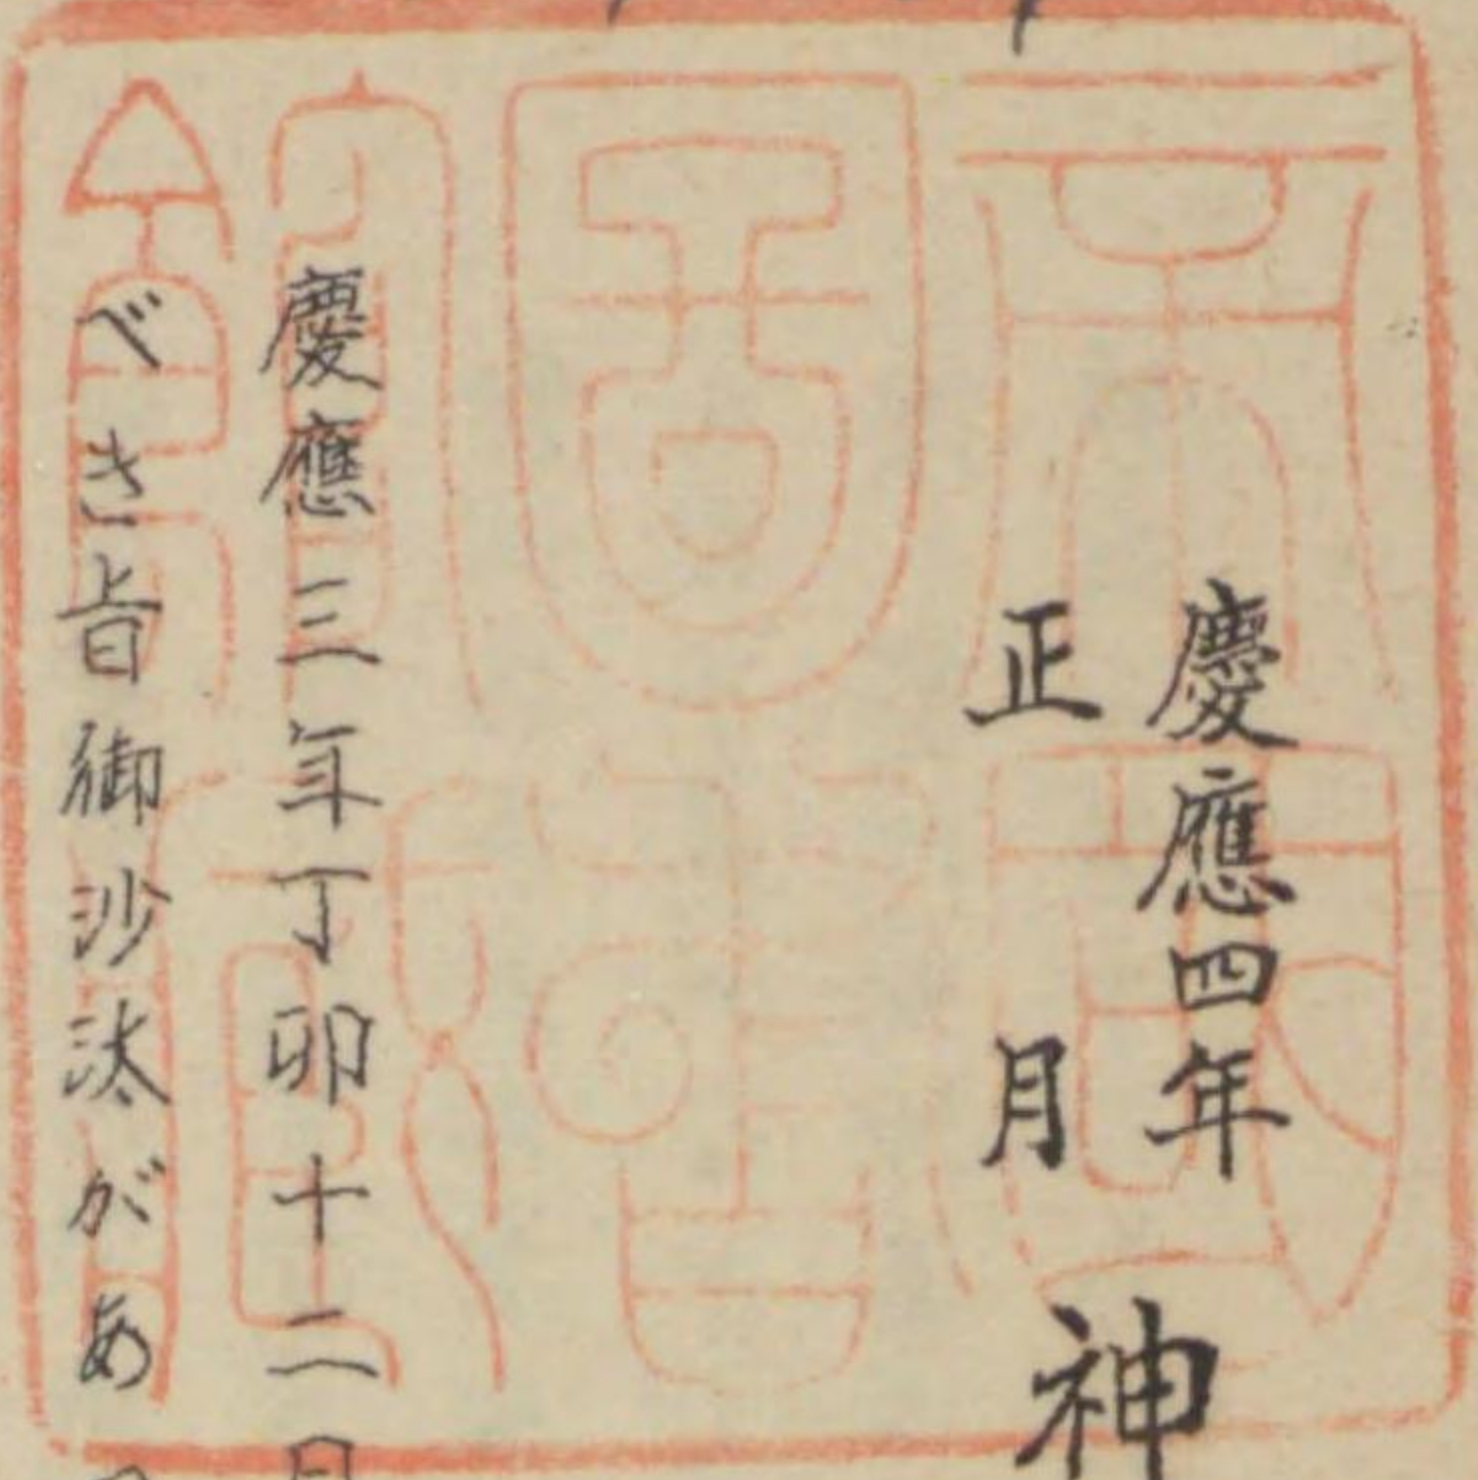 慶應四年
正月
神
慶應三年丁卯十二月
べき旨御沙汰があ
帝國圖書館藏